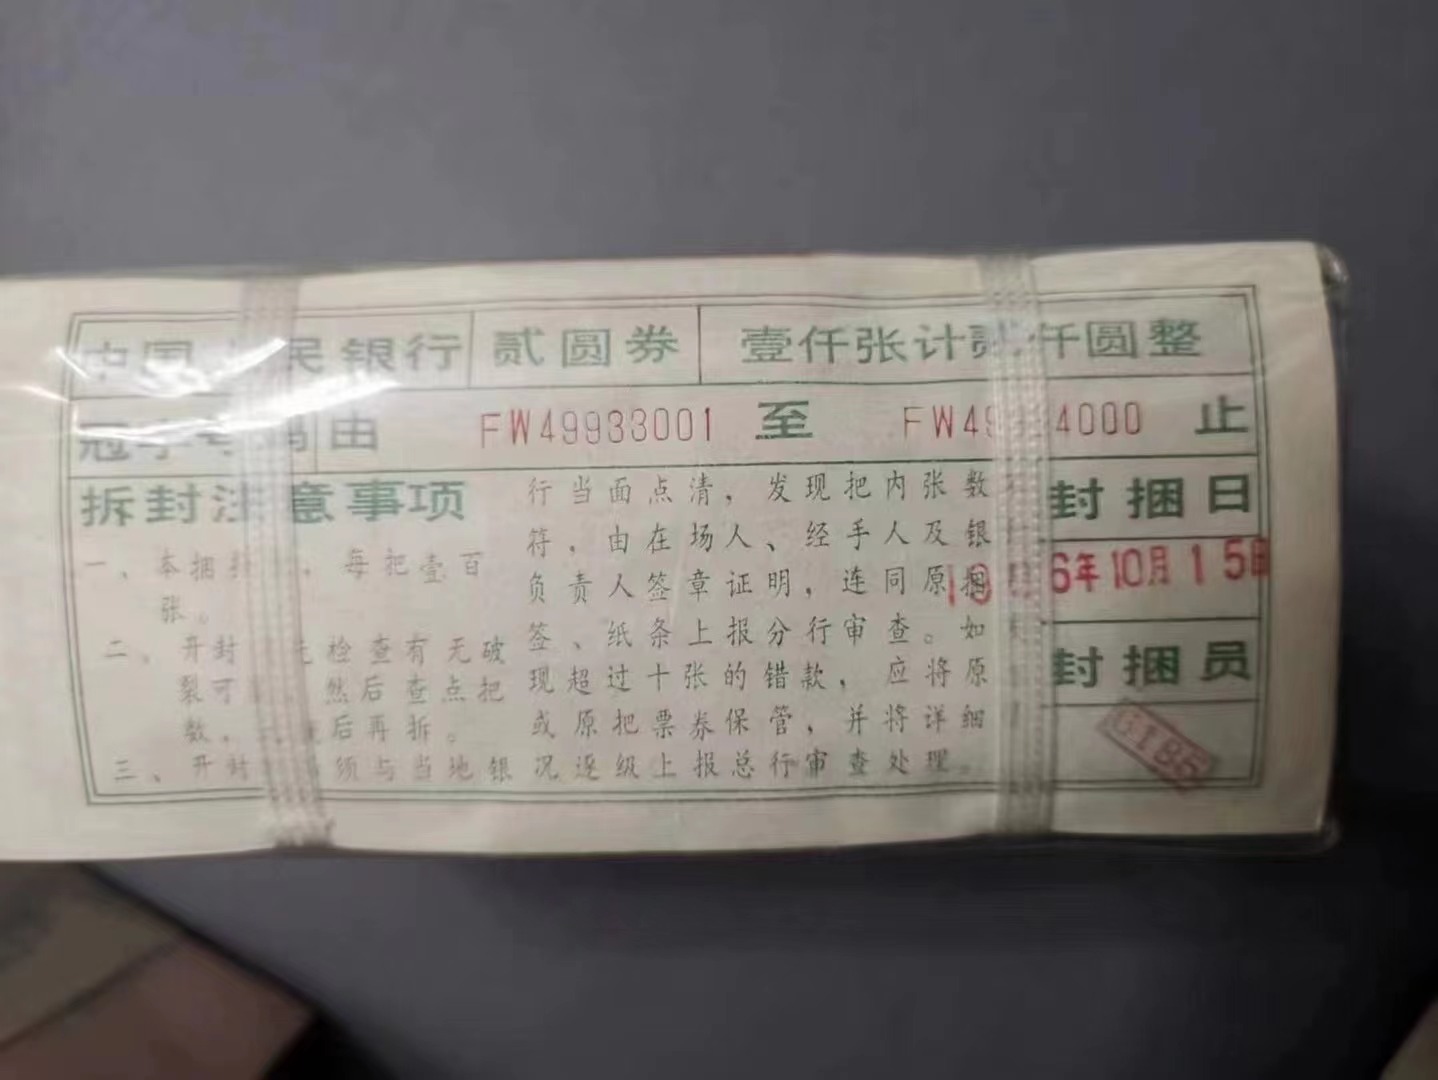 中国人民银行 贰圆券 壹仟张计贰仟圆整
冠字号码 由 FW49933001 至 FW49 4000 止
拆封注意事项
一、本捆 , 每把壹百
张。
二、开封 先检查有无破
裂可 然后查点把
数, 后再拆。
三、开封 须与当地银
行当面点清,发现把内张数
符,由在场人、经手人及银
负责人签章证明,连同原捆
签、纸条上报分行审查。如
现超过十张的错款,应将原
或原把票券保管,并将详细
况逐级上报总行审查处理。
封捆日
6年10月15日
封捆员
6186